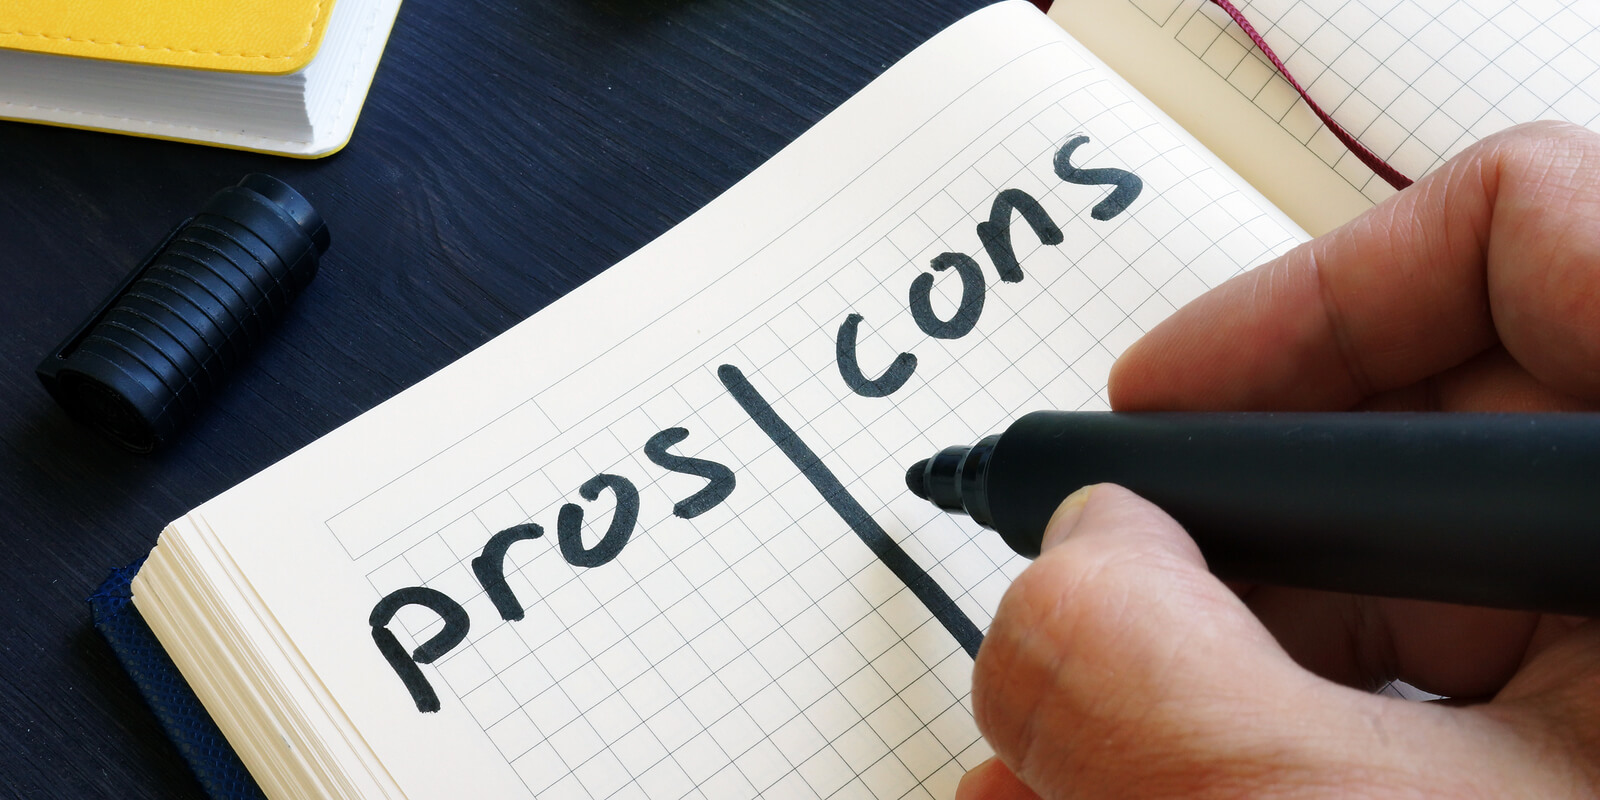 pros cons